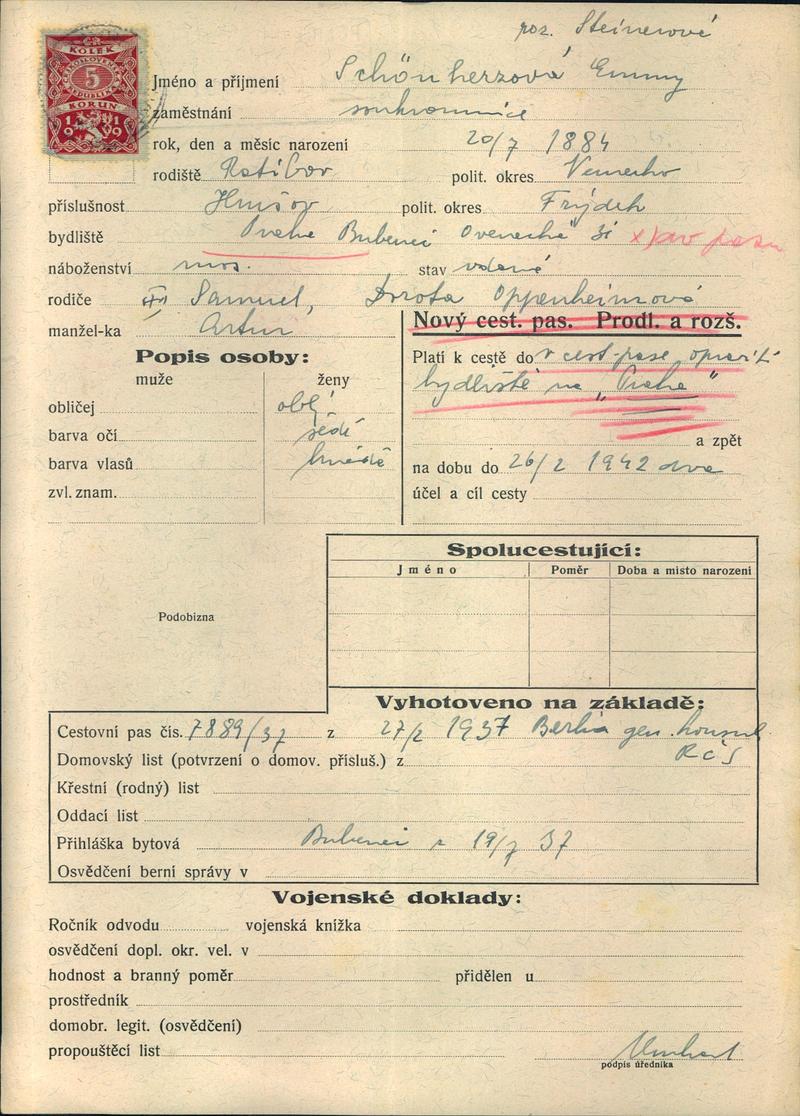 roz. Steinerové
KOLEK
5
KORUN
1919
Jméno a příjmení Schönherzová Emmy
zaměstnání soukromnice
rok, den a měsíc narození 20/7 1884
rodiště Ratibor polit. okres Německo
příslušnost Hrušov polit. okres Frýdek
bydliště Praha Bubeneč Ovenecká
náboženství mos. stav vdaná
rodiče Samuel, Dorota Oppenheimová
manžel-ka Artur
Nový cest. pas. Prodl. a rozš.
Popis osoby:
muže ženy
obličej obl.
barva očí šedé
barva vlasů hnědé
zvl. znam.
Platí k cestě do v cest. pase opravit
bydliště na „Praha"
a zpět
na dobu do 26/2 1942
účel a cíl cesty
Spolucestující:
Jméno Poměr Doba a místo narození
Podobizna
Vyhotoveno na základě:
Cestovní pas čís. 7889/37 z 27/2 1937 Berlin gen. konsul
RČS
Domovský list (potvrzení o domov. přísluš.) z
Křestní (rodný) list
Oddací list
Přihláška bytová Bubeneč z 19/7 37
Osvědčení berní správy v
Vojenské doklady:
Ročník odvodu vojenská knížka
osvědčení dopl. okr. vel. v
hodnost a branný poměr přidělen u
prostředník
domobr. legit. (osvědčení)
propouštěcí list
podpis úředníka